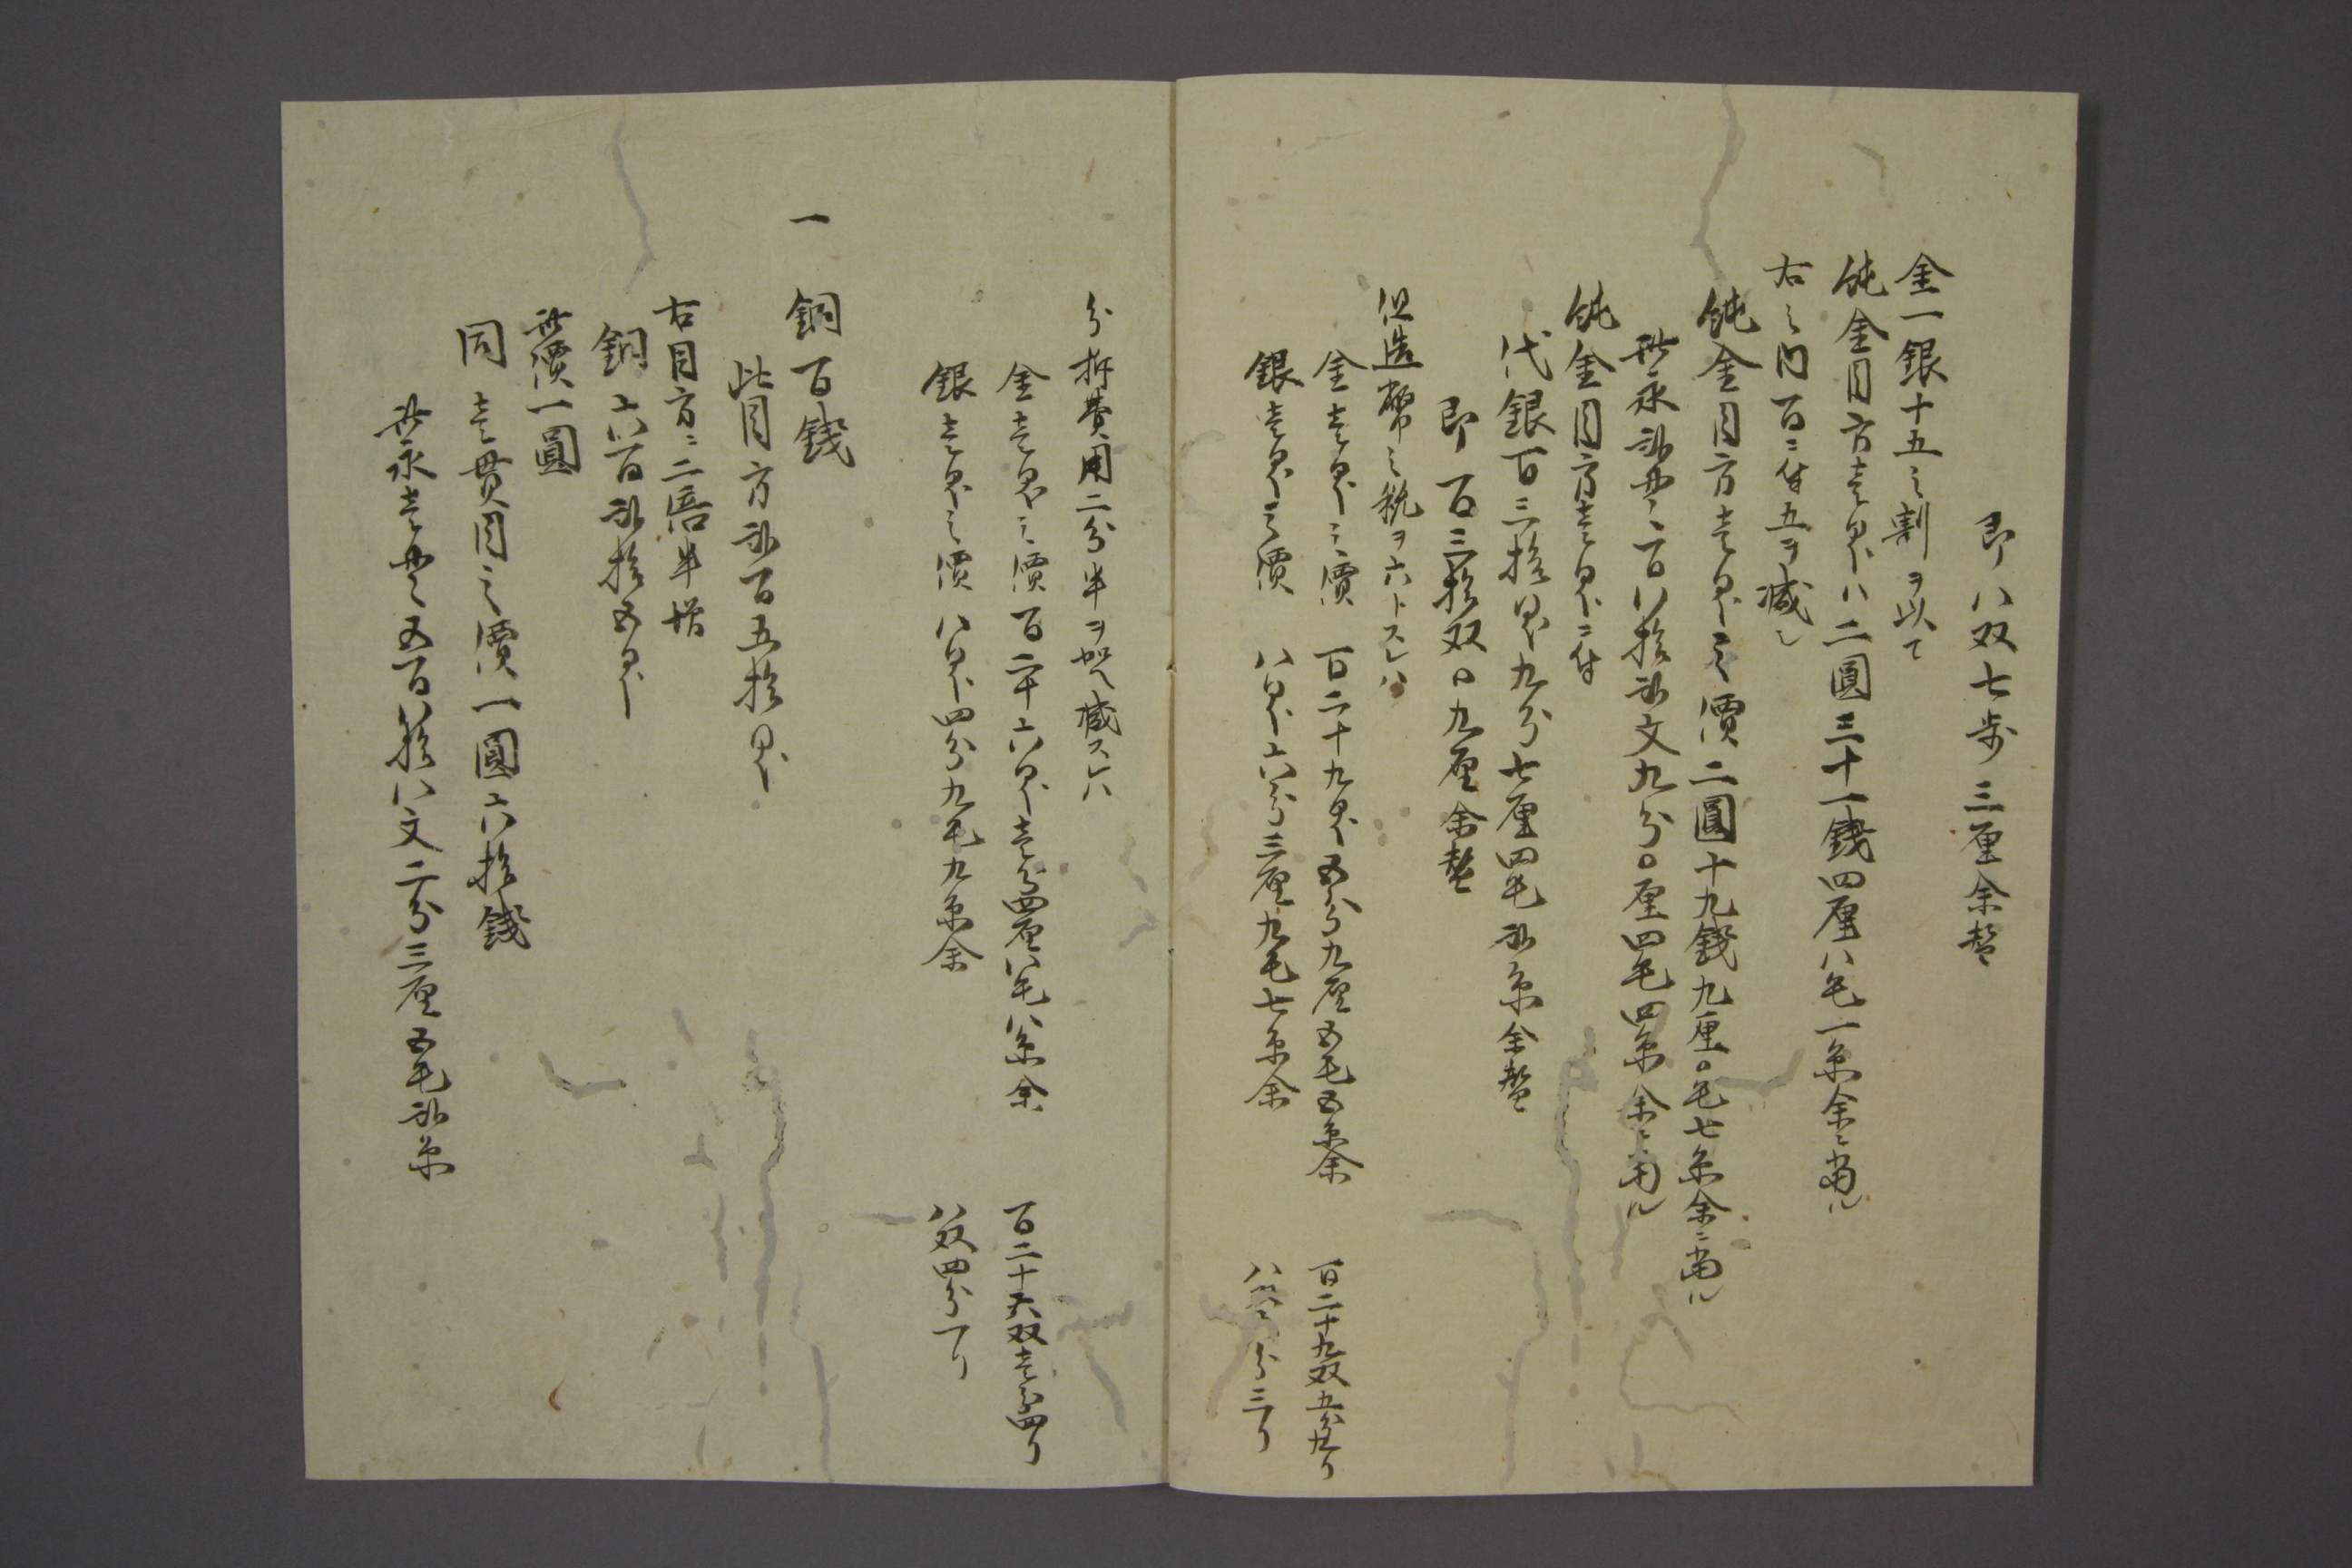 即八双七歩三厘余替
金一銀十五之割ヲ以て
純金目方壱匁ハ二圓三十一錢四厘八毛一糸余ニ当ル
右之内百ニ付五ヲ減し
純金目方壱匁之價二圓十九錢九厘〇毛七糸余ニ当ル
此永弐貫二百八拾弐文九分〇厘四毛四糸余ニ当ル
純金目方壱匁ニ付
代銀百三拾匁九分七厘四毛弐糸余替
即百三拾双〇九厘余替
但造幣之税ヲ六トスレハ
金壱匁之價 百二十九匁五分九厘五毛五糸余 百二十九双五分九り
銀壱匁之價 八匁六分三厘九毛七糸余 八双六分三り
分拆費用二分半ヲ加へ減スレハ
金壱匁之價百二十六匁壱分四厘八毛八糸余 百二十六双壱分四り
銀壱匁之價八匁四分九毛九糸余 八双四分一り
一 銅百錢
此目方弐百五拾匁
右目方ニ二倍半増
銅六百弐拾五匁
此價一圓
同壱貫目之價一圓六拾錢
此永壱貫五百八拾八文二分三厘五毛弐糸